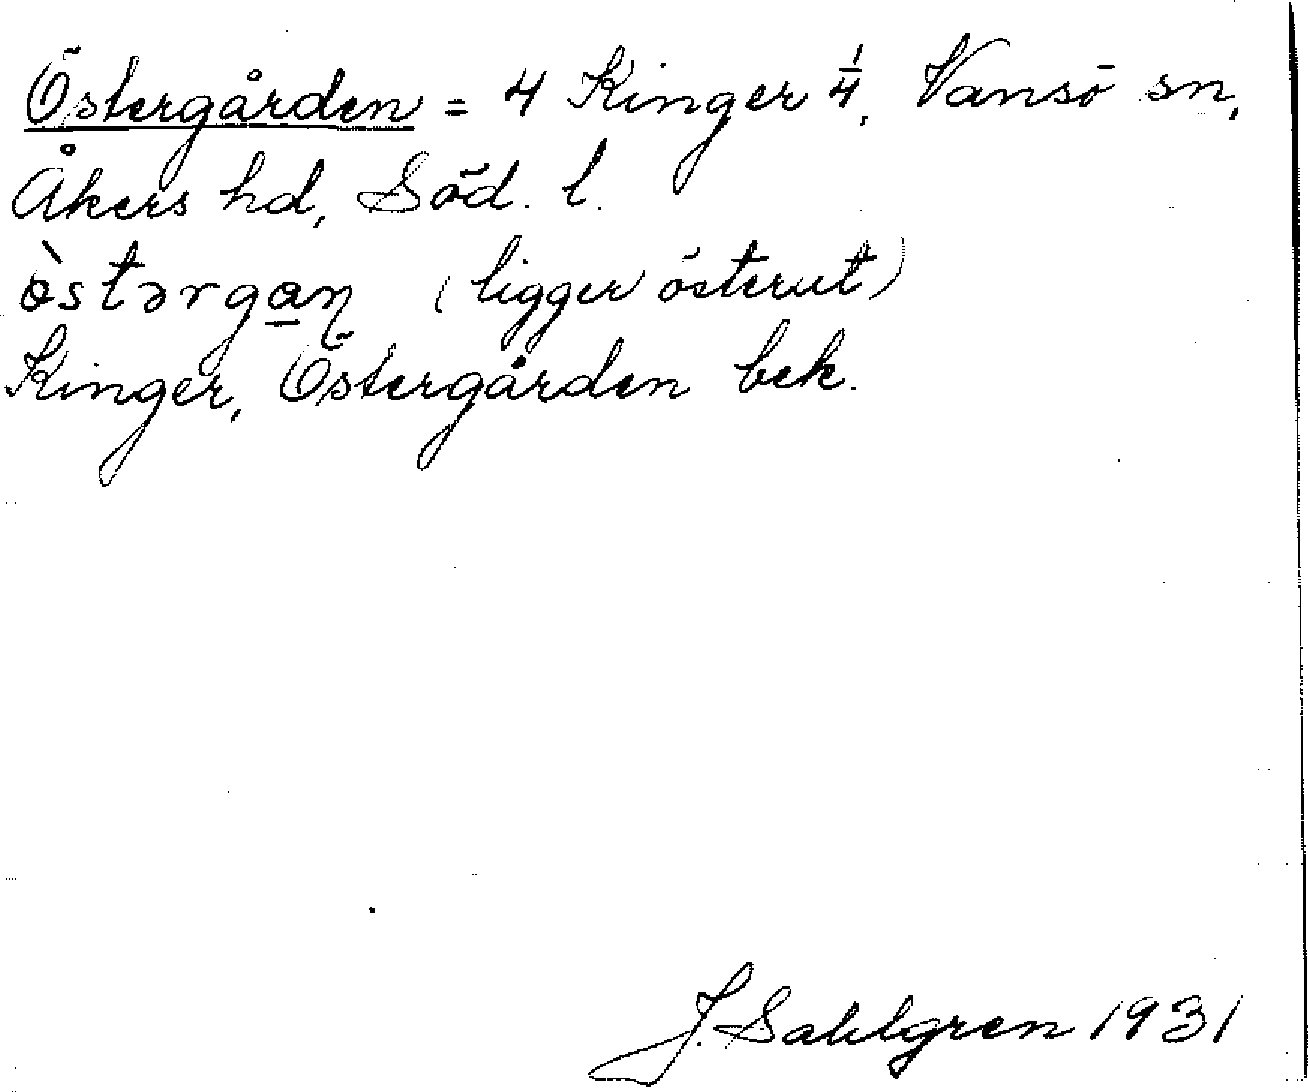 Östergården = 4 Kinger 1/4, Vansö sn,
Åkers hd, Söd. l.
òstərgaṇ (ligger österut)
Kinger, Östergården bek.
J. Sahlgren 1931